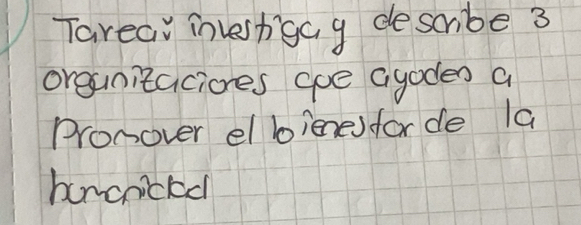 Tarea: investiga y describe 3
organizaciones que ayuden a
Promover el bienestar de la
humanidad